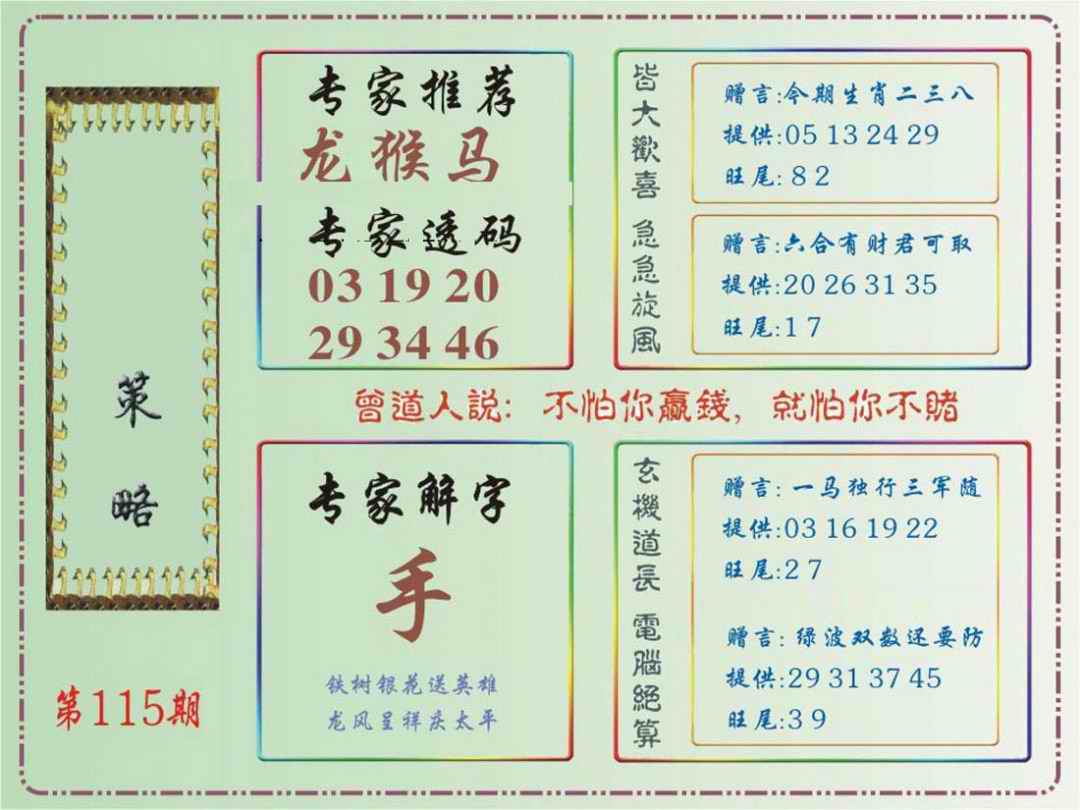 策
略
第115期
专家推荐
龙猴马
专家透码
03 19 20
29 34 46
皆大歡喜
赠言:今期生肖二三八
提供:05 13 24 29
旺尾:8 2
急急旋風
赠言:六合有财君可取
提供:20 26 31 35
旺尾:1 7
曾道人説: 不怕你赢錢, 就怕你不賭
专家解字
手
铁树银花送英雄
龙风呈祥庆太平
玄機道長
赠言: 一马独行三军随
提供:03 16 19 22
旺尾:2 7
電腦絕算
赠言: 绿波双数还要防
提供:29 31 37 45
旺尾:3 9